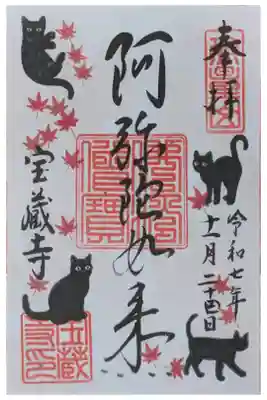 奉拝
令和七年
十一月二十四日
阿弥陀如来
宝蔵寺